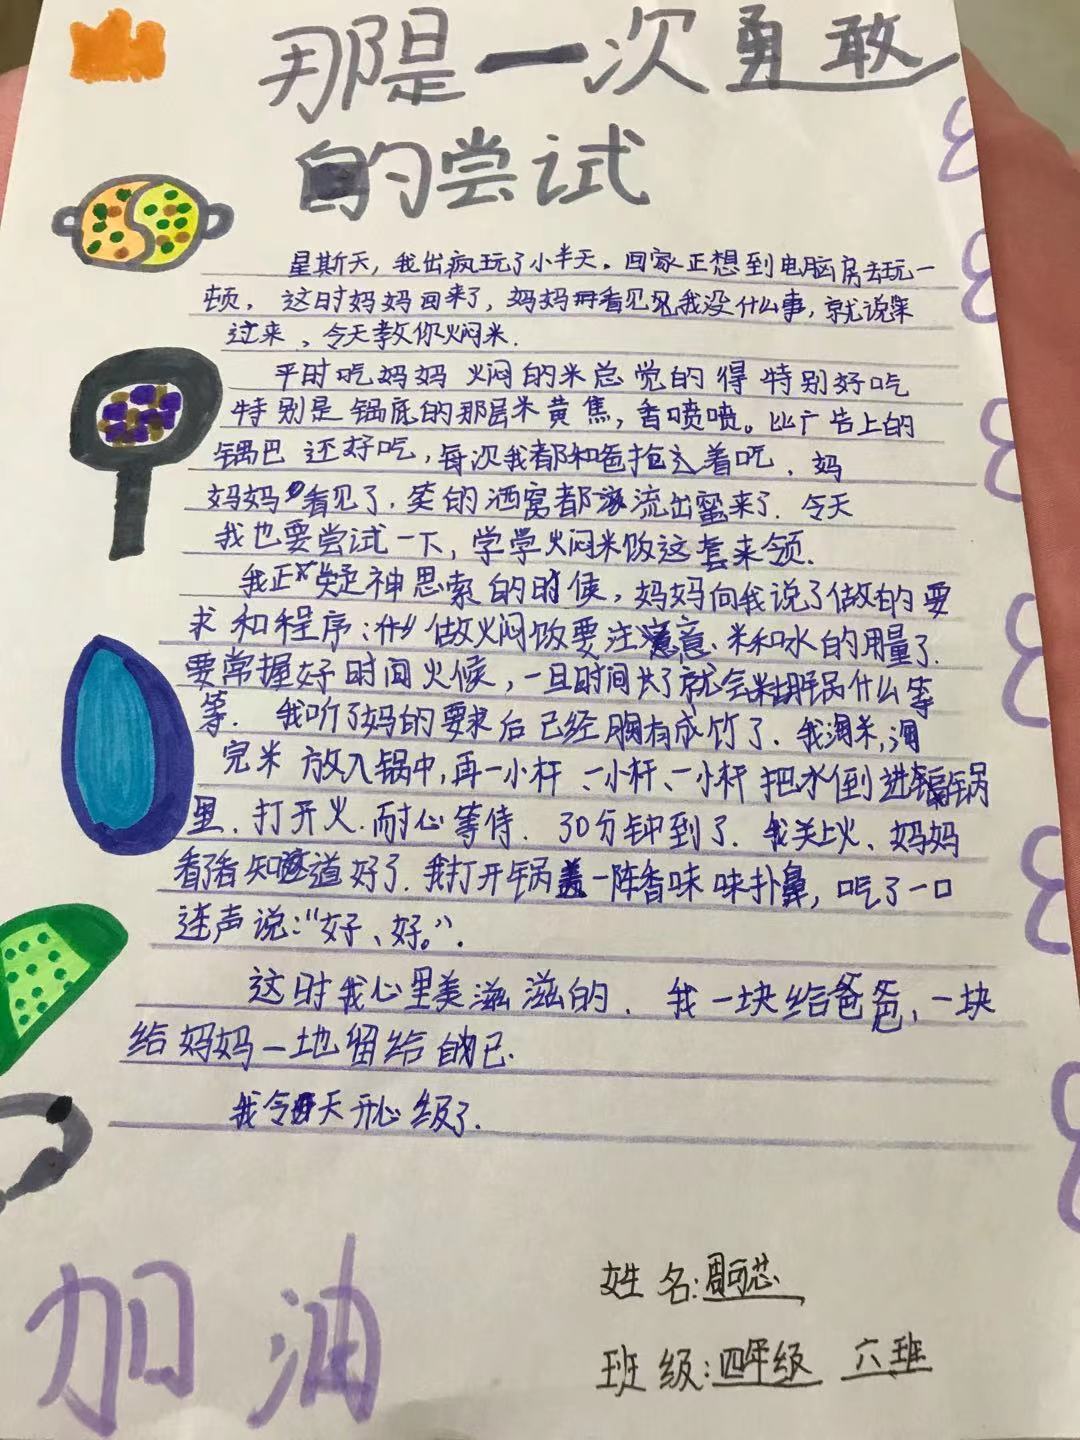 那是一次勇敢
的尝试
星斯天，我出疯玩了小半天。回家正想到电脑房去玩一
顿。这时妈妈回来了，妈妈看见我没什么事，就说
过来、今天教你焖米.
平时吃妈妈焖的米总觉的得特别好吃
特别是锅底的那层米黄焦，香喷喷。比广告上的
锅巴还好吃，每次我都和爸抢着吃、妈
妈妈看见了，笑的酒窝都流出蜜来了.今天
我也要尝试一下，学学焖米饭这套来领.
我正凝神思索的时侯，妈妈向我说了做的要
求和程序：做焖饭要注意、米和水的用量了.
要常握好时间火候，一旦时间长了就会糊锅什么等
等.我听了妈的要求后已经胸有成竹了.我淘米，淘
完米放入锅中，再一小杆、一小杆、一小杆把水倒进锅
里.打开火.耐心等待.30分钟到了.我关上火、妈妈
看了看知道好了.我打开锅盖一阵香味味扑鼻，吃了一口
连声说：“好、好。”.
这时我心里美滋滋的.我一块给爸爸、一块
给妈妈一地留给自己.
我今天开心级了.
加油
姓名:周可芯
班级:四年级 六班